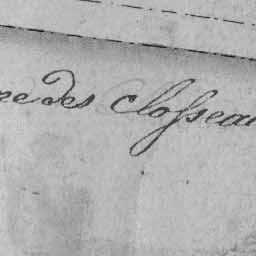 re des Closseau